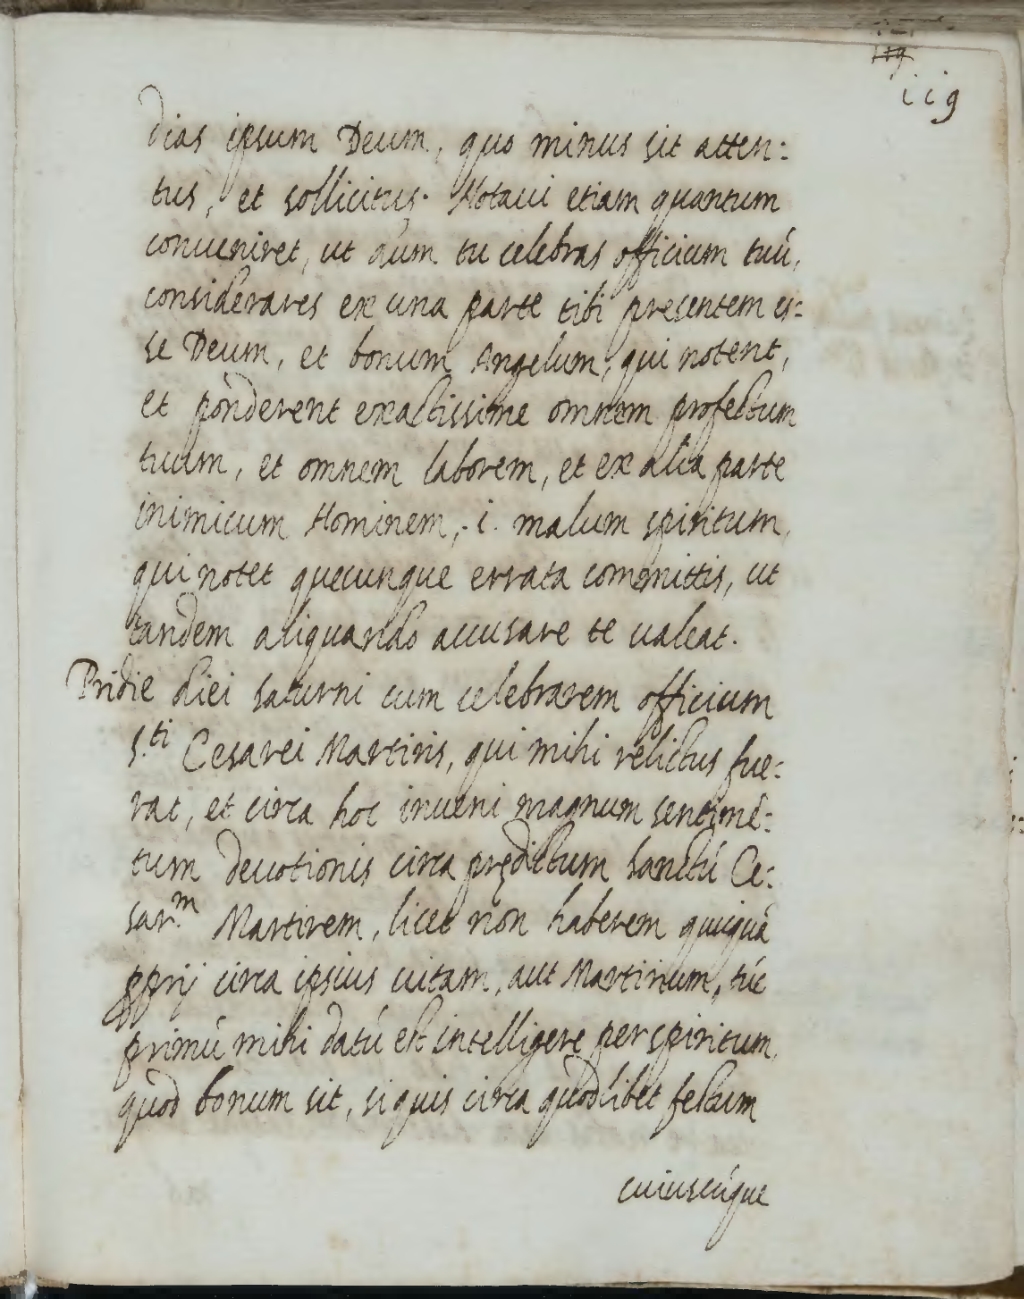 119
dias ipsum Deum, quo minus sit atten:
tus, et sollicitus. Notaui etiam quantum
conueniret, ut dum tu celebras officium tuú,
considerares ex una parte tibi presentem es:
se Deum, et bonum Angelum, qui notent,
et ponderent exactissime omnem profectum
tuum, et omnem laborem, et ex alia parte
inimicum Hominem, .i. malum spiritum,
qui notet quecunque errata committis, ut
tandem aliquando accusare te ualeat.
Pridie diei saturni cum celebrarem officium
S.ti Cesarei Martiris, qui mihi relictus fue:
rat, et circa hoc inueni magnum sentimē:
tum deuotionis circa prędictum sanctú Ce:
sar.m Martirem, licet non haberem quiquā
pprij circa ipsius uitam, aut Martirium, túc
primú mihi datú est intelligere per spiritum,
quod bonum sit, si quis circa quodlibet festum
cuiuscúque